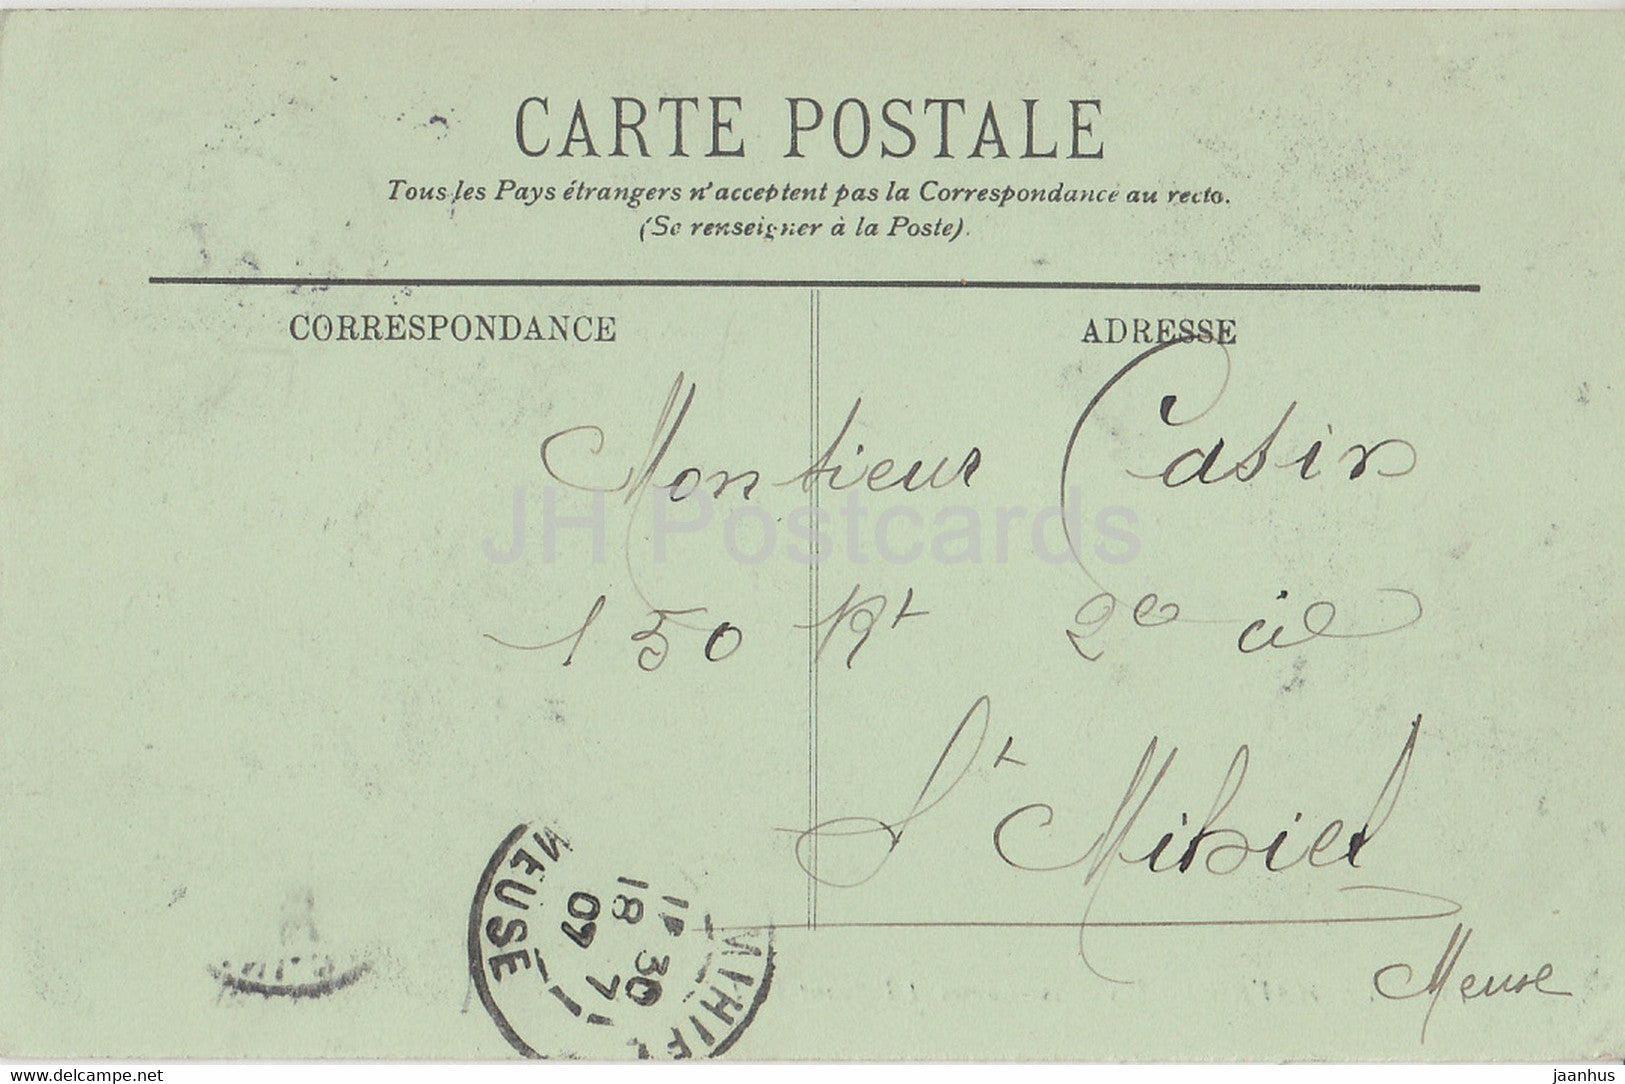 CARTE POSTALE
Tous les Pays étrangers n'acceptent pas la Correspondance au recto.
(Se renseigner à la Poste).
CORRESPONDANCE
ADRESSE
Monsieur Casin
150 Rt 2e cie
St Mihiel
Meuse
MEUSE
18 30
JH Postcards
www.delcampe.net
jaanhus